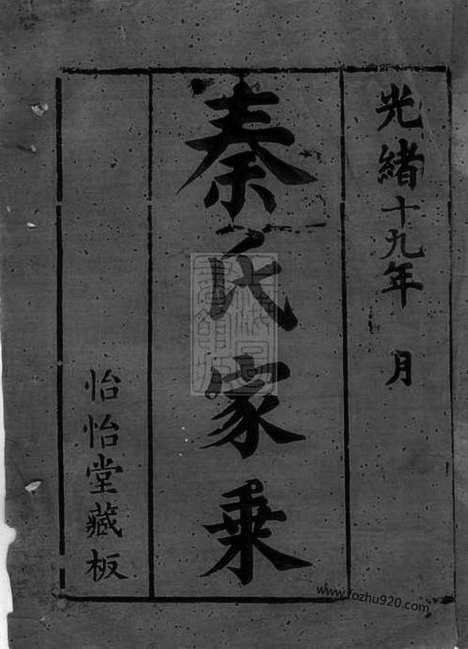 光緒十九年 月
秦氏家乗
怡怡堂藏板
www.fozhu920.com